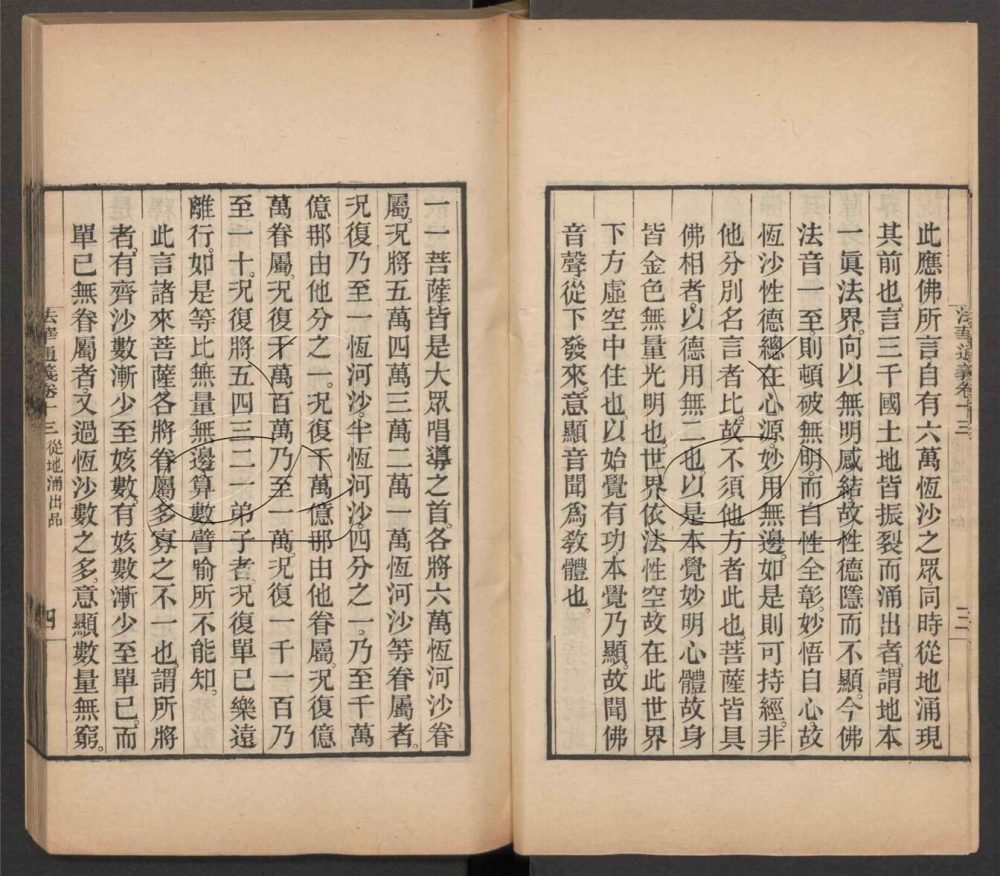 法華通義卷十三
三
此應佛所言。自有六萬恆沙之眾。同時從地涌現
其前也。言三千國土地皆振裂而涌出者。謂地本
一眞法界。向以無明感結故性德隱而不顯。今佛
法音一至則頓破無明。而自性全彰。妙悟自心。故
恆沙性德總在心源。妙用無邊。如是則可持經。非
他分別名言者比。故不須他方者此也。菩薩皆具
佛相者。以德用無二也。以是本覺妙明心體故身
皆金色無量光明也。世界依法性空。故在此世界
下方虛空中住也。以始覺有功。本覺乃顯。故聞佛
音聲從下發來。意顯音聞爲敎體也。
一一菩薩皆是大眾唱導之首。各將六萬恆河沙眷
屬。況將五萬四萬三萬二萬一萬恆河沙等眷屬者。
況復乃至一恆河沙。半恆河沙。四分之一。乃至千萬
億那由他分之一。況復千萬億那由他眷屬。況復億
萬眷屬。況復千萬百萬乃至一萬。況復一千一百乃
至一十。況復將五四三二一弟子者。況復單已樂遠
離行。如是等比無量無邊。算數譬喻所不能知。
此言諸來菩薩各將眷屬多寡之不一也。謂所將
者。有齊沙數漸少至姟數。有姟數漸少至單已。而
單已無眷屬者。又過恆沙數之多。意顯數量無窮。
法華通義卷十三 從地涌出品
四